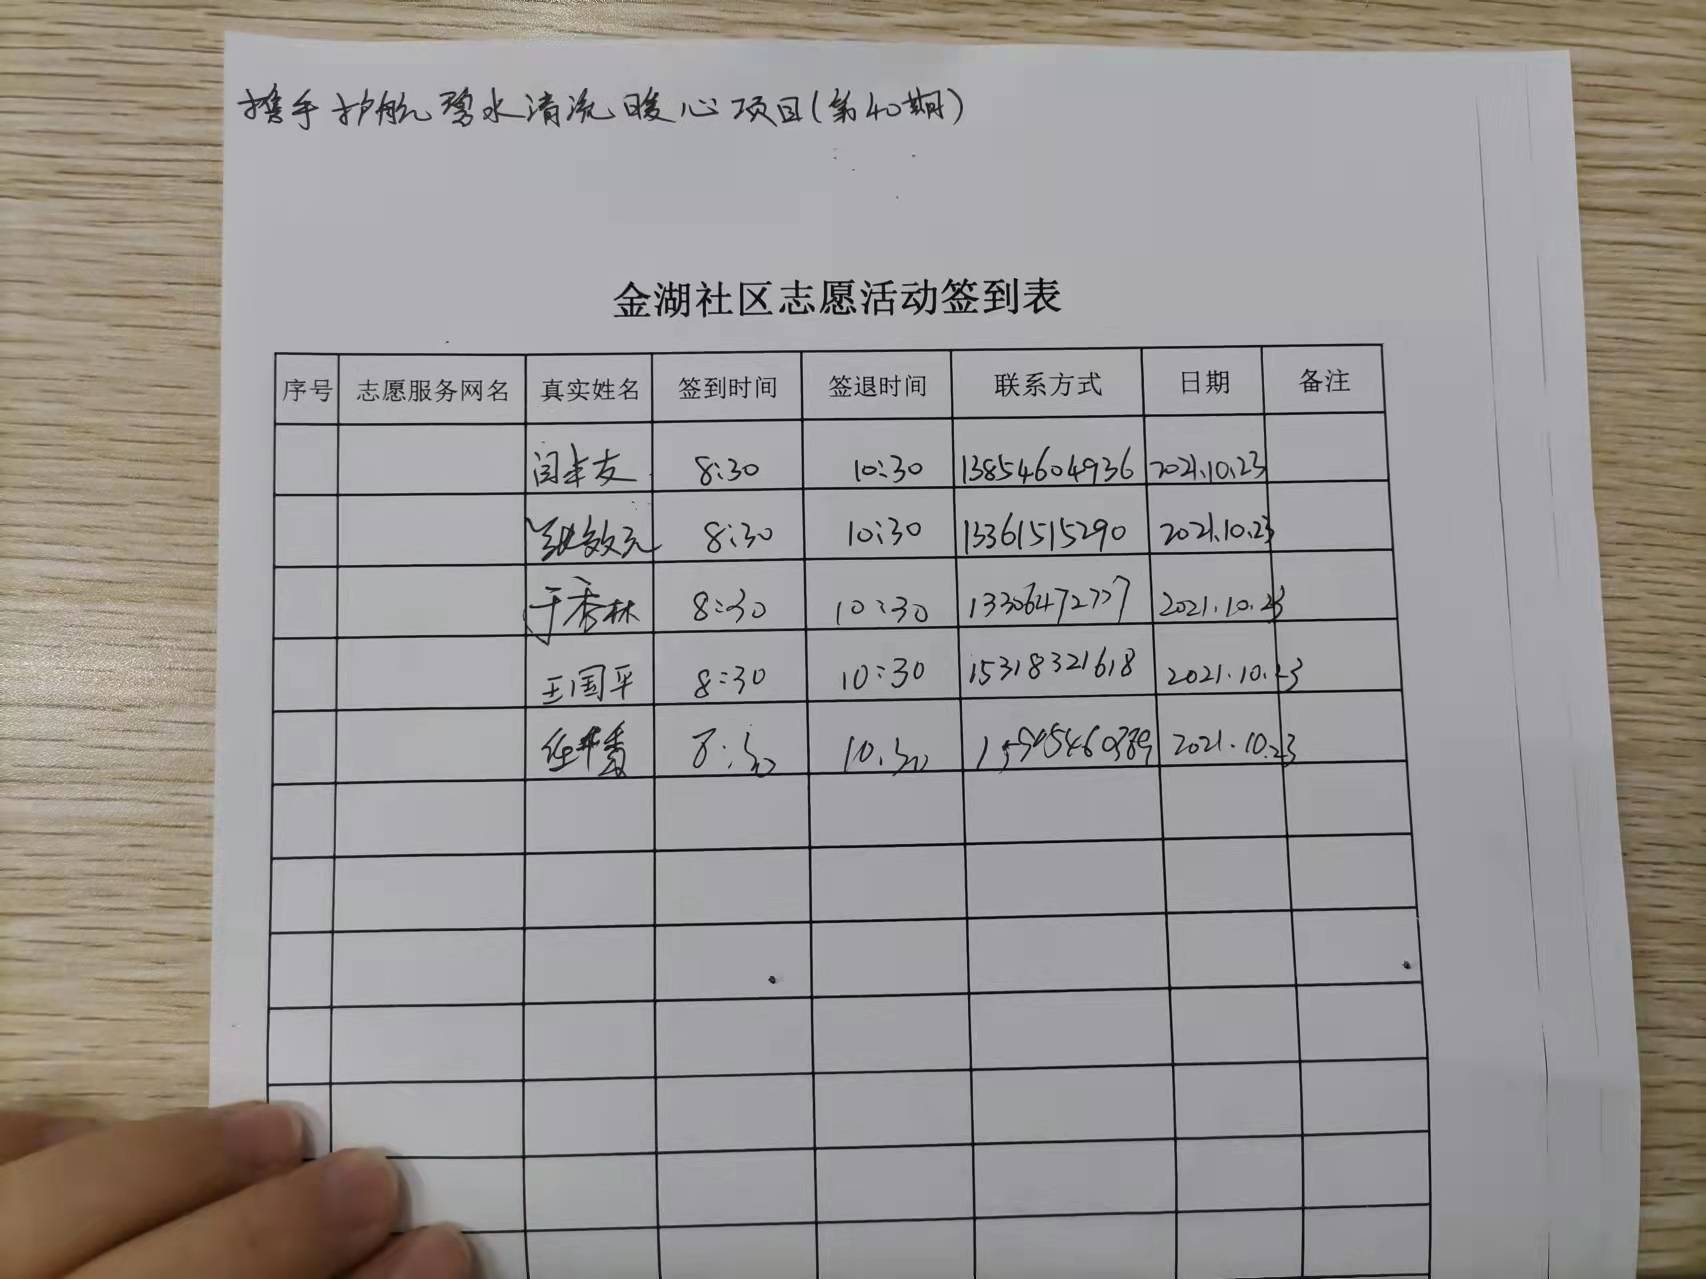 携手护航碧水清流暖心项目(第40期)
金湖社区志愿活动签到表
序号 志愿服务网名 真实姓名 签到时间 签退时间 联系方式 日期 备注
闫丰友 8:30 10:30 13854604936 2021.10.23
效元 8:30 10:30 13361515290 2021.10.23
于秀林 8:30 10:30 13306472777 2021.10.23
王国平 8:30 10:30 15318321618 2021.10.23
8:30 10:30 2021.10.23